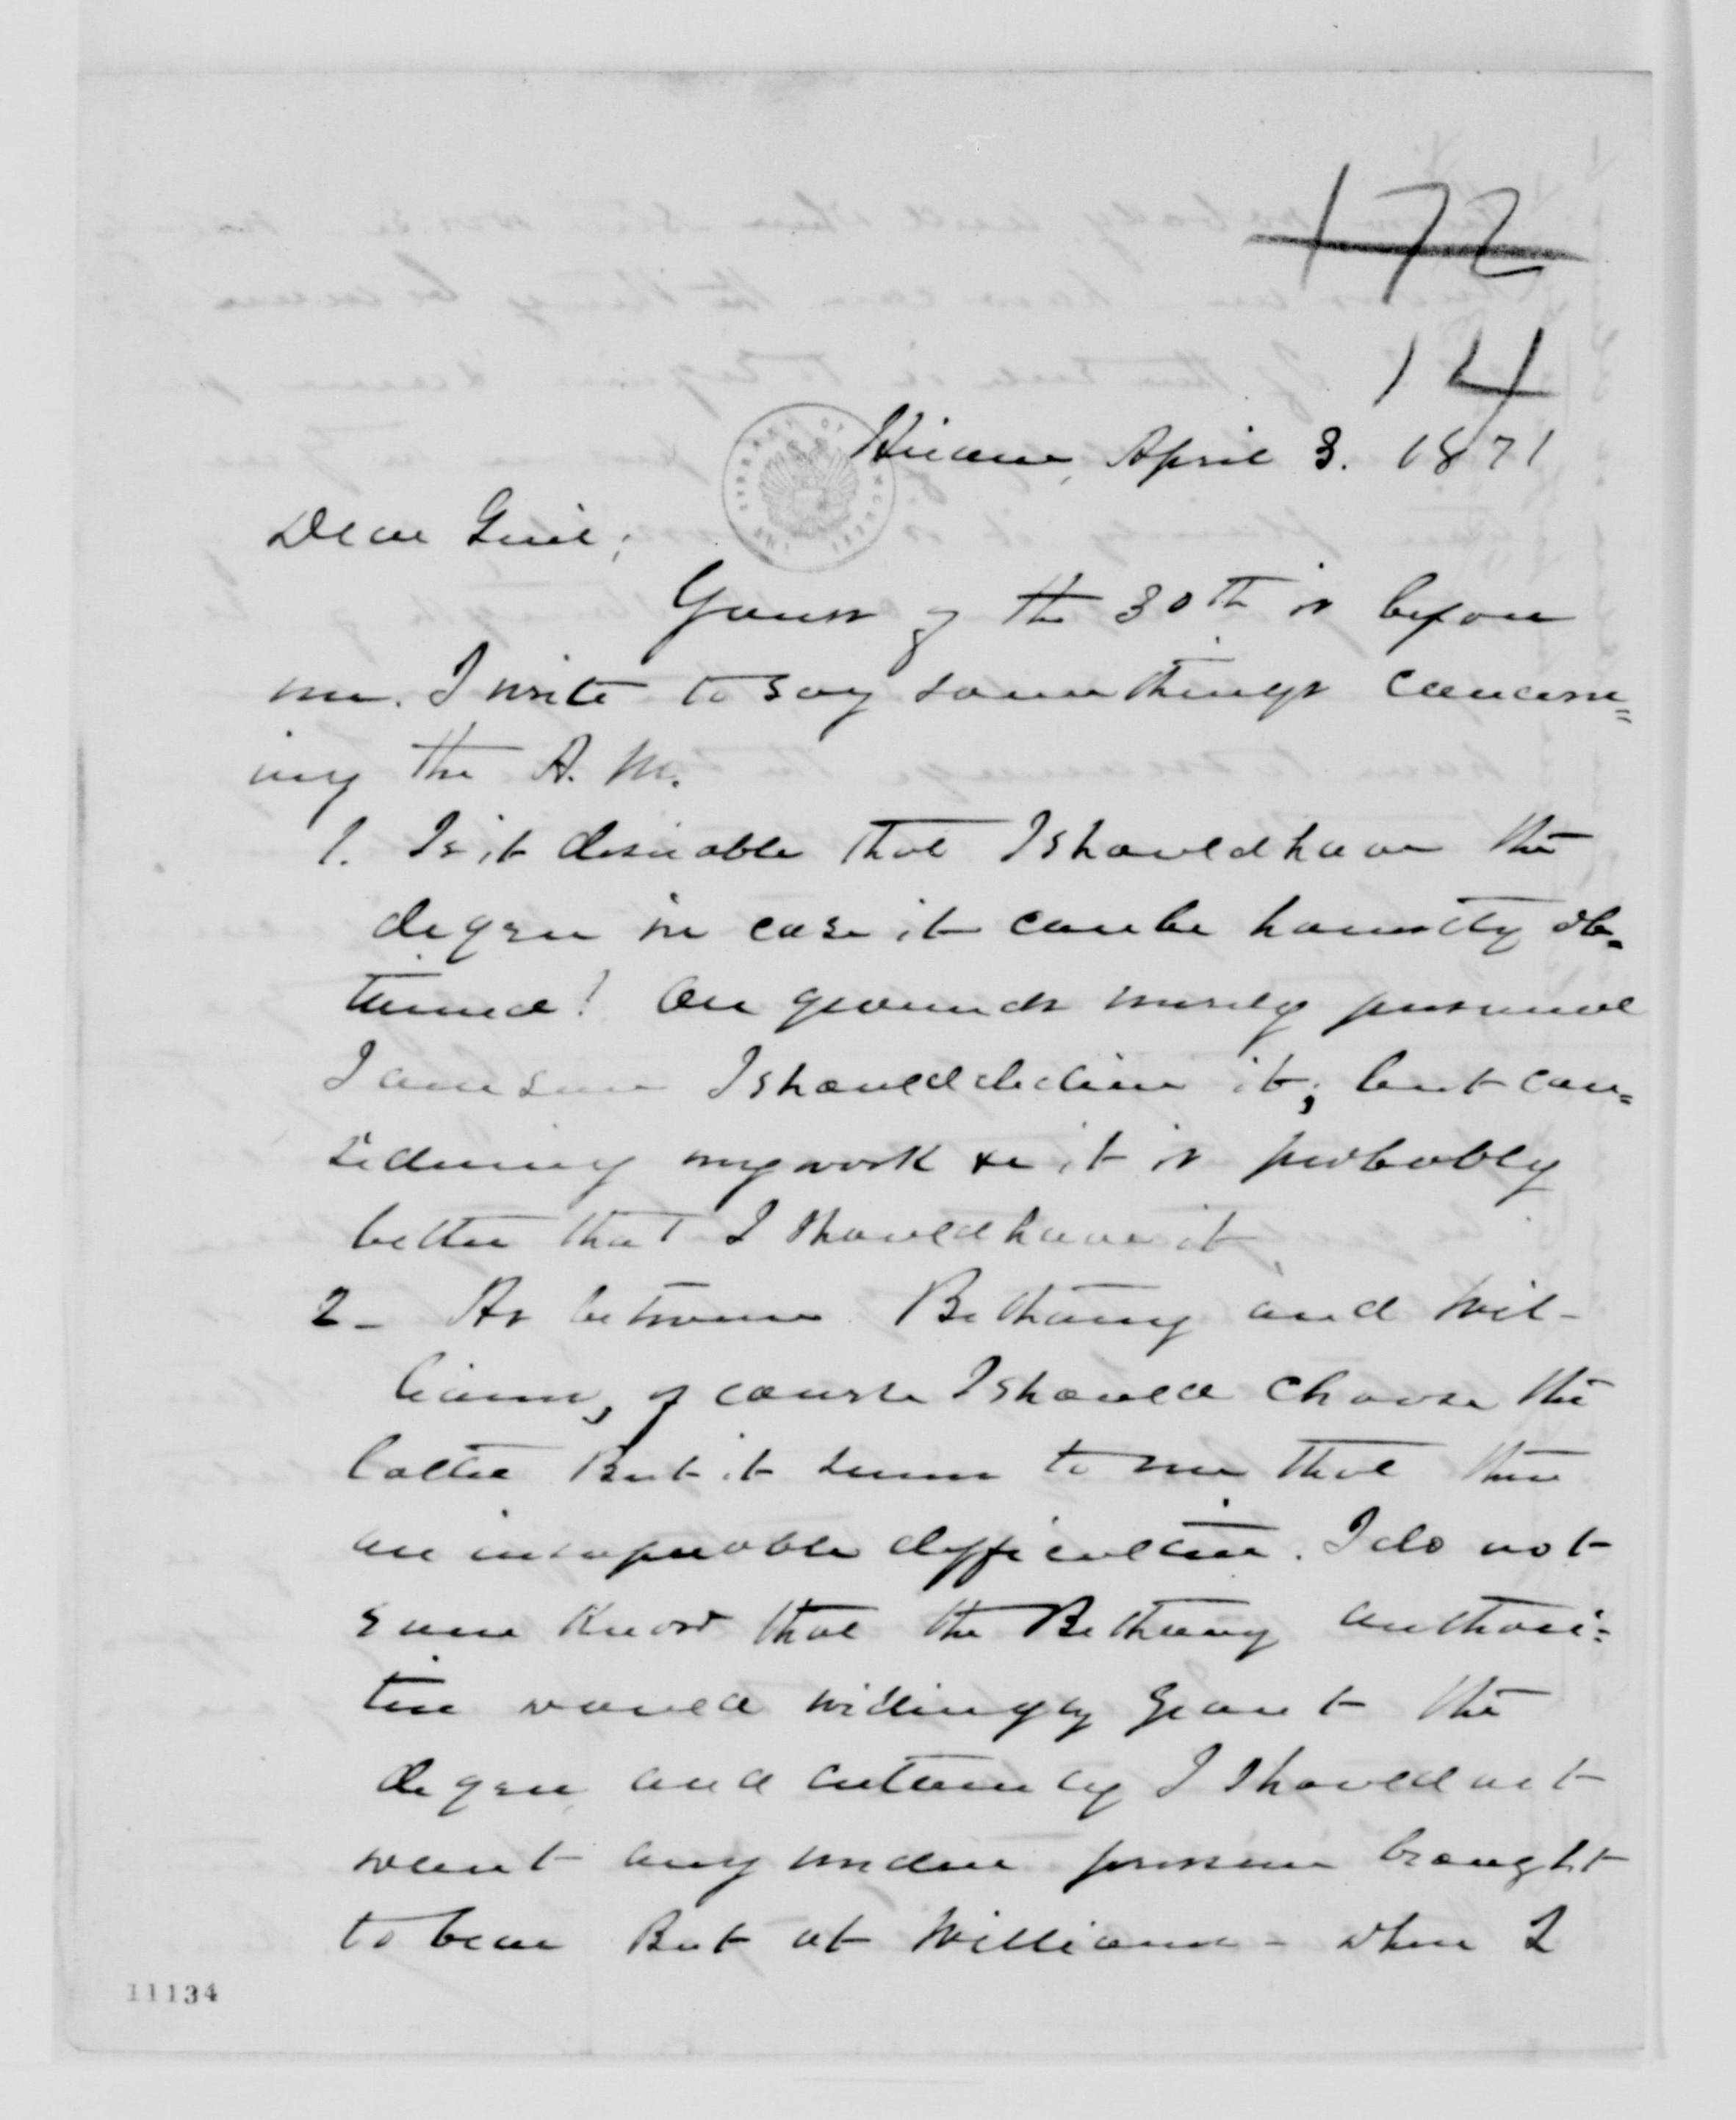 172
14
Hiram, April 3. 1871
Dear Genl;
Yours of the 30th is before
me. I write to say some things concern=
ing the A. M.
1. Is it desirable that I should have the
degree in case it can be honestly ob=
tained? On grounds merely personal
I am sure I should decline it; but con=
sidering my work &c it is probably
better that I should have it
2 - As between Bethany and Wil-
liams, of course I should choose the
latter But it seems to me that there
are insuperable difficulties. I do not
even know that the Bethany authori=
ties would willingly grant the
degree, and certainly I should not
want any undue pressure brought
to bear But at Williams - where I
11134